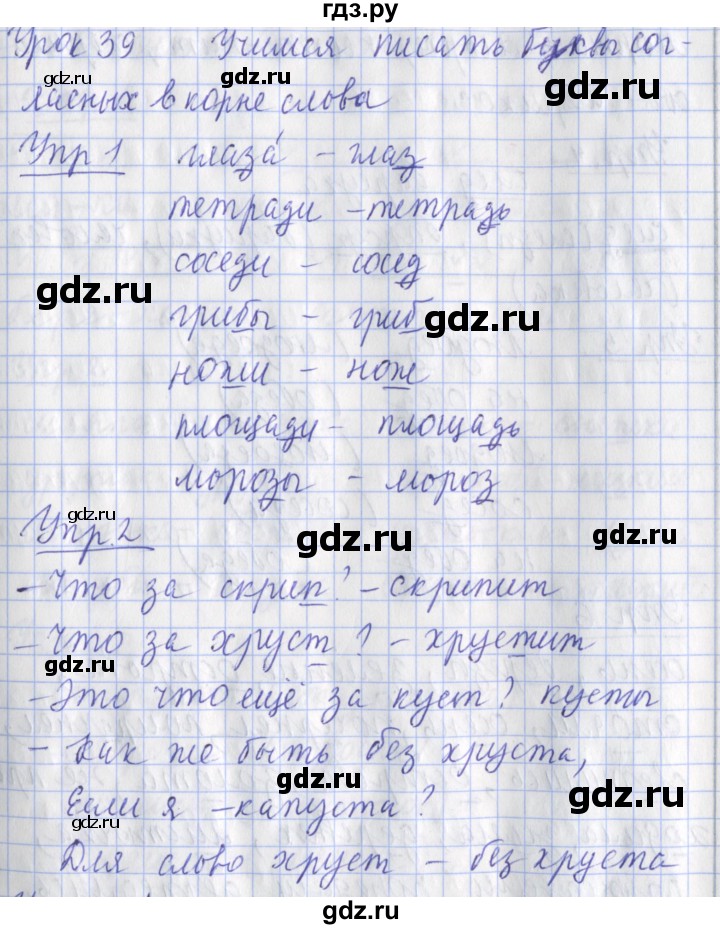 гдз.ру
Урок 39 Учимся писать буквы сог-
gdz.ru
gdz.ru
ласных в корне слова
Упр 1 глаза́ – глаз
тетради – тетрадь
соседи – сосед
gdz.ru
грибы – гриб
gdz.ru
ножи – нож
площади – площадь
морозы – мороз
gdz.ru
Упр. 2
gdz.ru
gdz.ru
– Что за скрип? – скрипит
– Что за хруст? – хрустит
gdz.ru
– Это что ещё за куст? кусты
– Как же быть без хруста,
gdz.ru
Если я – капуста?
gdz.ru
gdz.ru
Для слово хруст – без хруста
gdz.ru